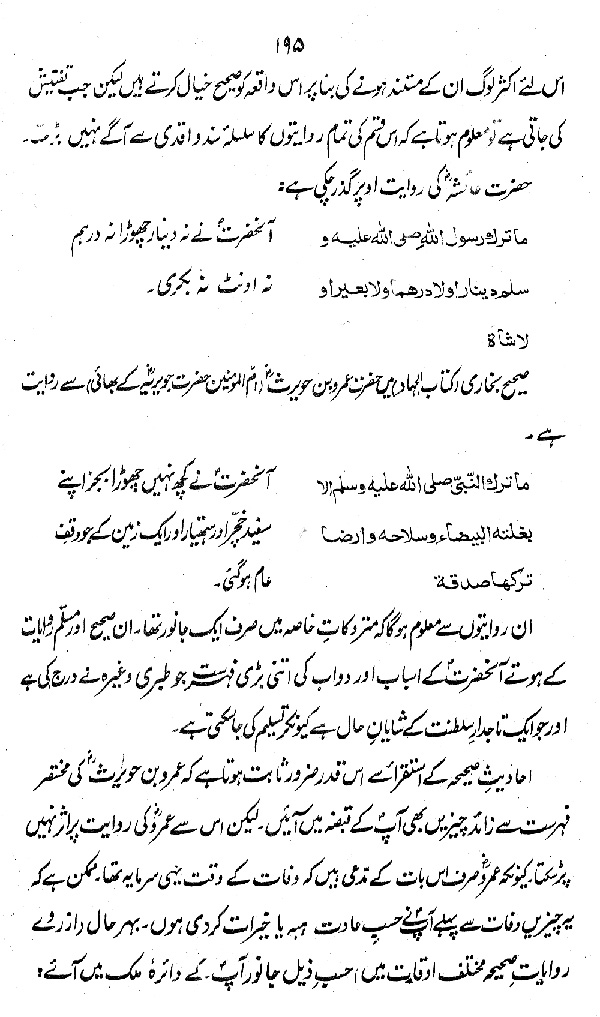 ۱۹۵
اس لئے اکثر لوگ ان کے مستند ہونے کی بنا پر اس واقعہ کو صحیح خیال کرتے ہیں لیکن جب تفتیش
کی جاتی ہے تو معلوم ہوتا ہے کہ اس قسم کی تمام روایتوں کا سلسلۂ سند واقدی سے آگے نہیں بڑھتا۔
حضرت عائشہؓ کی روایت اوپر گذر چکی ہے:
ما ترك رسول الله صلى الله عليه و
سلم دينارا ولا درهما ولا بعيرا و
لا شاة
آنحضرتؐ نے نہ دینار چھوڑا نہ درہم
نہ اونٹ نہ بکری۔
صحیح بخاری (کتاب الجہاد) میں حضرت عمرو بن حویرثؓ (ام المومنین حضرت جویریہؓ کے بھائی) سے روایت
ہے۔
ما ترك النبي صلى الله عليه وسلم الا
بغلته البيضاء وسلاحه وارضا
تركها صدقة
آنحضرتؐ نے کچھ نہیں چھوڑا بجز اپنے
سفید خچر اور ہتھیار اور ایک زمین کے جو وقف
عام ہو گئی۔
ان روایتوں سے معلوم ہوگا کہ متروکاتِ خاصہ میں صرف ایک جانور تھا۔ ان صحیح اور مسلّم روایات
کے ہوتے آنحضرتؐ کے اسباب اور دواب کی اتنی بڑی فہرست جو طبری وغیرہ نے درج کی ہے
اور جو ایک تاجدارِ سلطنت کے شایانِ حال ہے کیونکر تسلیم کی جاسکتی ہے۔
احادیثِ صحیحہ کے استقرا سے اس قدر ضرور ثابت ہوتا ہے کہ عمرو بن حویرثؓ کی مختصر
فہرست سے زائد چیزیں بھی آپؐ کے قبضہ میں آئیں۔ لیکن اس سے عمروؓ کی روایت پر اثر نہیں
پڑ سکتا، کیونکہ عمروؓ صرف اس بات کے مدعی ہیں کہ وفات کے وقت یہی سرمایہ تھا۔ ممکن ہے کہ
یہ چیزیں وفات سے پہلے آپؐ نے حسبِ عادت ہبہ یا خیرات کر دی ہوں۔ بہرحال ازروئے
روایاتِ صحیحہ مختلف اوقات میں حسب ذیل جانور آپؐ کے دائرۂ ملک میں آئے: